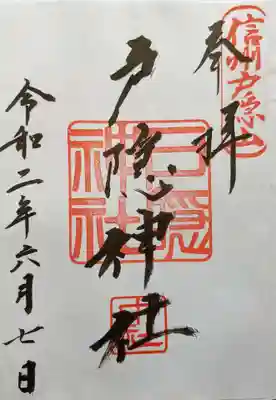 信州戸隠山
奉拝
戸隠神社
戸隠
神社
中社
令和二年六月七日